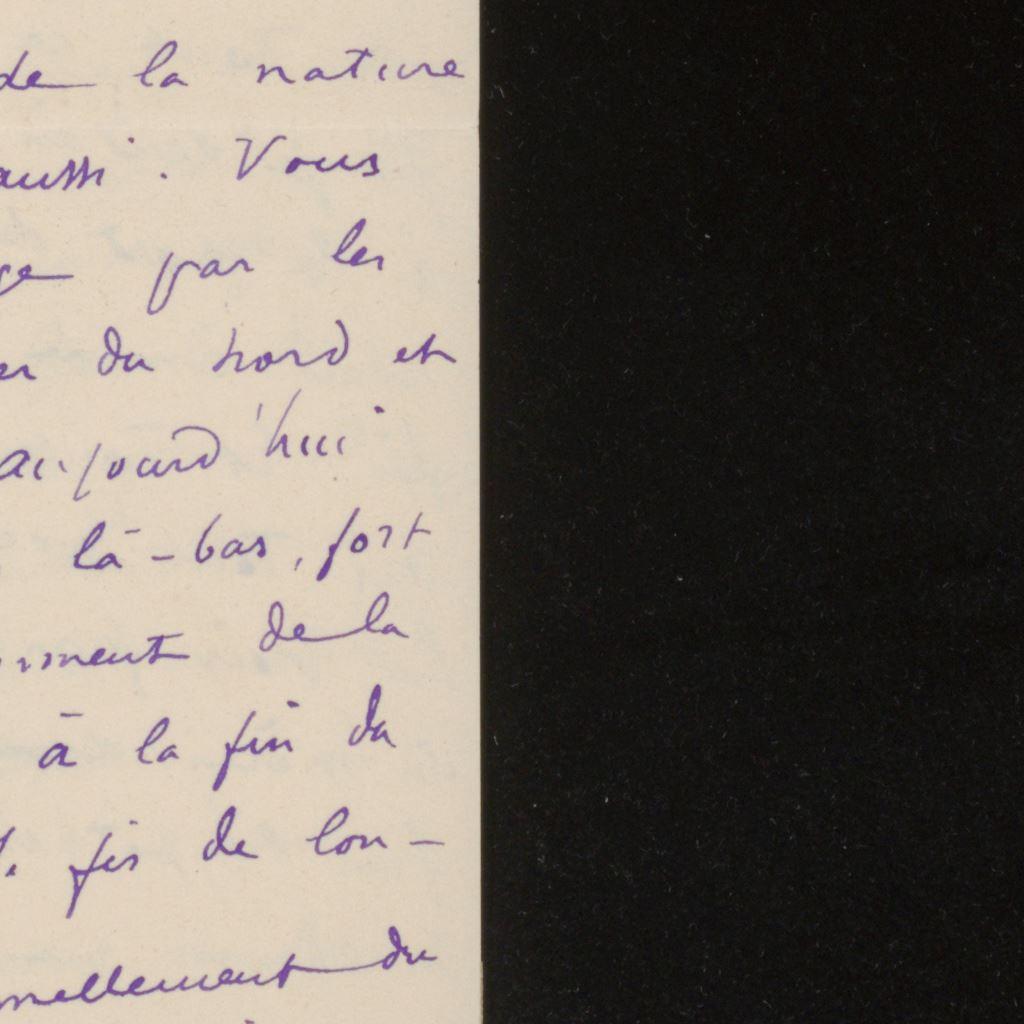 de la nature
aussi. Vous
par les
du nord et
aujourd'hui
là-bas, fort
de la
à la fin du
fis de lon-
nellement du